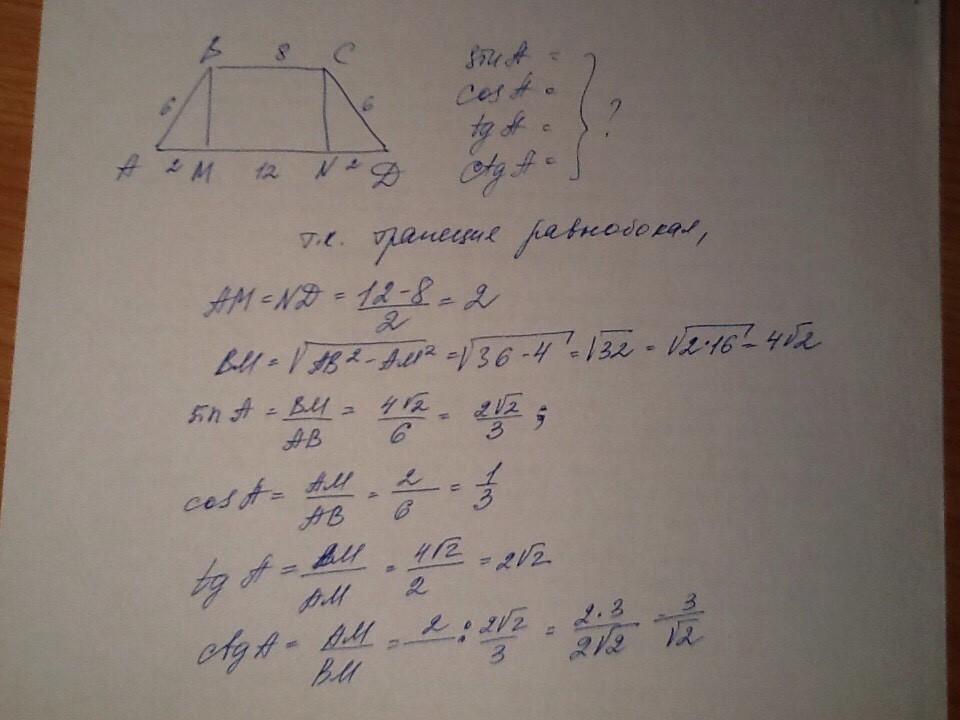 B 8 C
6 6
A 2 M 12 N 2 D
sin A =
cos A =
tg A =
ctg A =
?
т.к. трапеция равнобокая,
AM = ND = \frac{12-8}{2} = 2
BM = \sqrt{AB^2 - AM^2} = \sqrt{36-4} = \sqrt{32} = \sqrt{2·16} = 4\sqrt{2}
sin A = \frac{BM}{AB} = \frac{4\sqrt{2}}{6} = \frac{2\sqrt{2}}{3} ;
cos A = \frac{AM}{AB} = \frac{2}{6} = \frac{1}{3}
tg A = \frac{BM}{AM} = \frac{4\sqrt{2}}{2} = 2\sqrt{2}
ctg A = \frac{AM}{BM} = 2 : \frac{2\sqrt{2}}{3} = \frac{2·3}{2\sqrt{2}} = \frac{3}{\sqrt{2}}